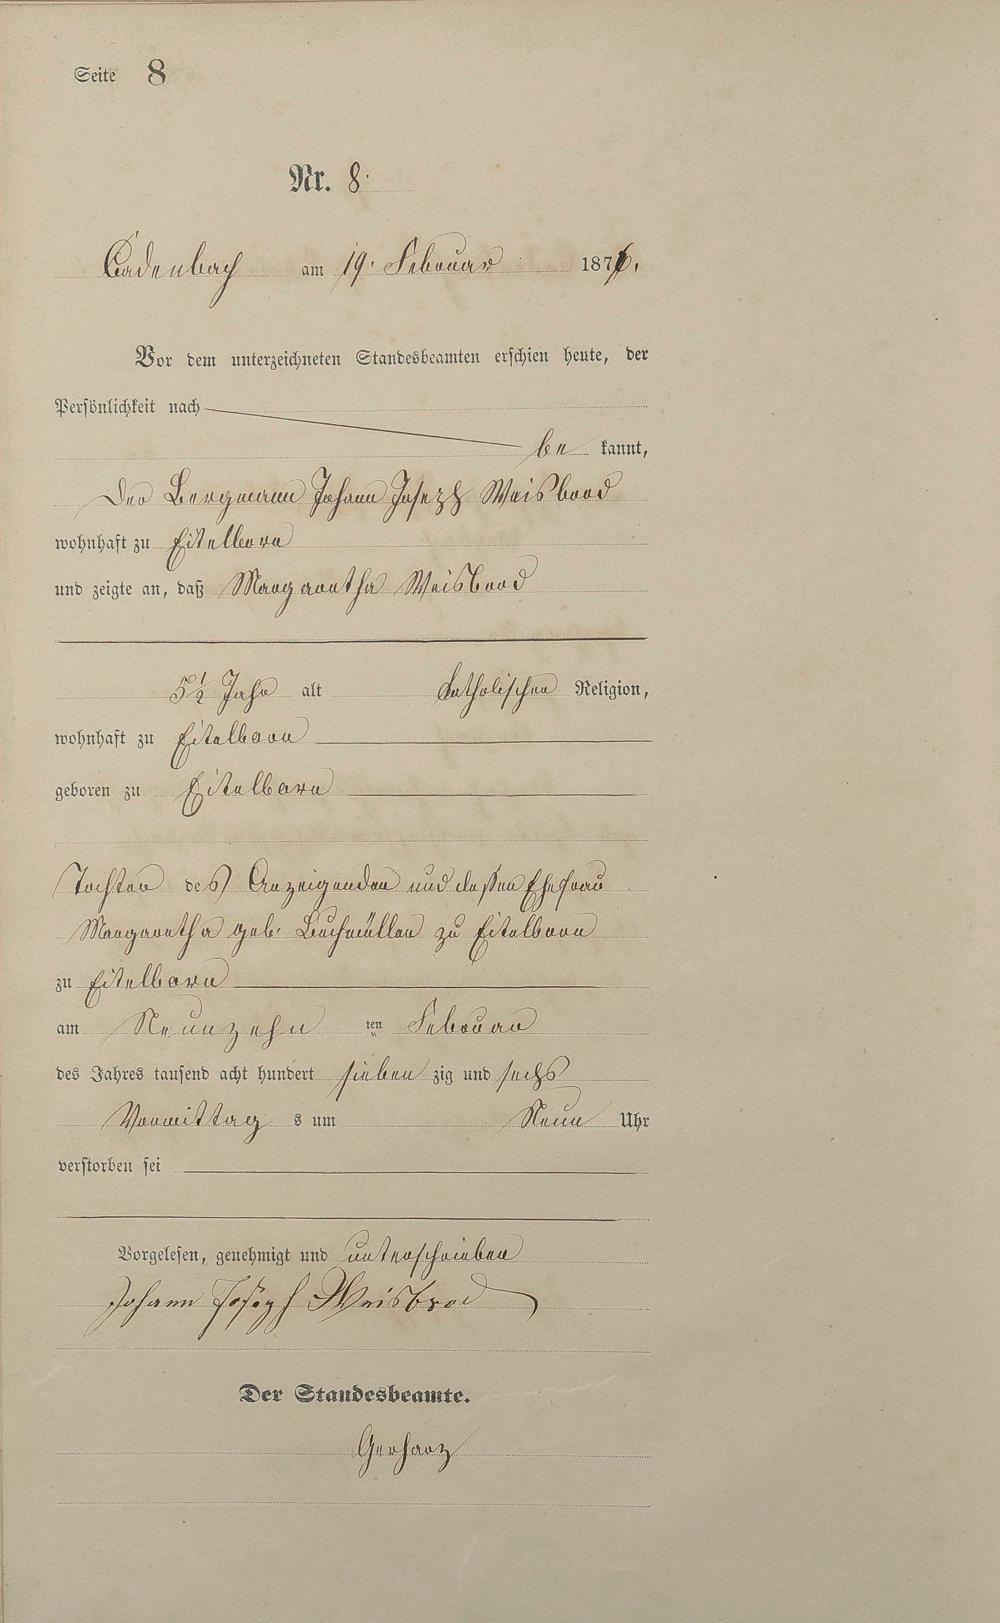 Seite 8
Nr. 8.
Cadenbach am 19. Februar 1876.
Vor dem unterzeichneten Standesbeamten erschien heute, der
Persönlichkeit nach
be kannt,
Der Bergmann Johann Joseph Weisbrod
wohnhaft zu Eitelborn
und zeigte an, daß Margaretha Weisbrod
5½ Jahr alt katholischen Religion,
wohnhaft zu Eitelborn
geboren zu Eitelborn
Tochter des Anzeigenden und dessen Ehefrau
Margaretha geb. Buchmüller zu Eitelborn
zu Eitelborn
am Neunzehn ten Februar
des Jahres tausend acht hundert sieben zig und sechs
Vormittag s um Neun Uhr
verstorben sei
Vorgelesen, genehmigt und unterschrieben
Johann Joseph Weisbrod
Der Standesbeamte.
Gerharz